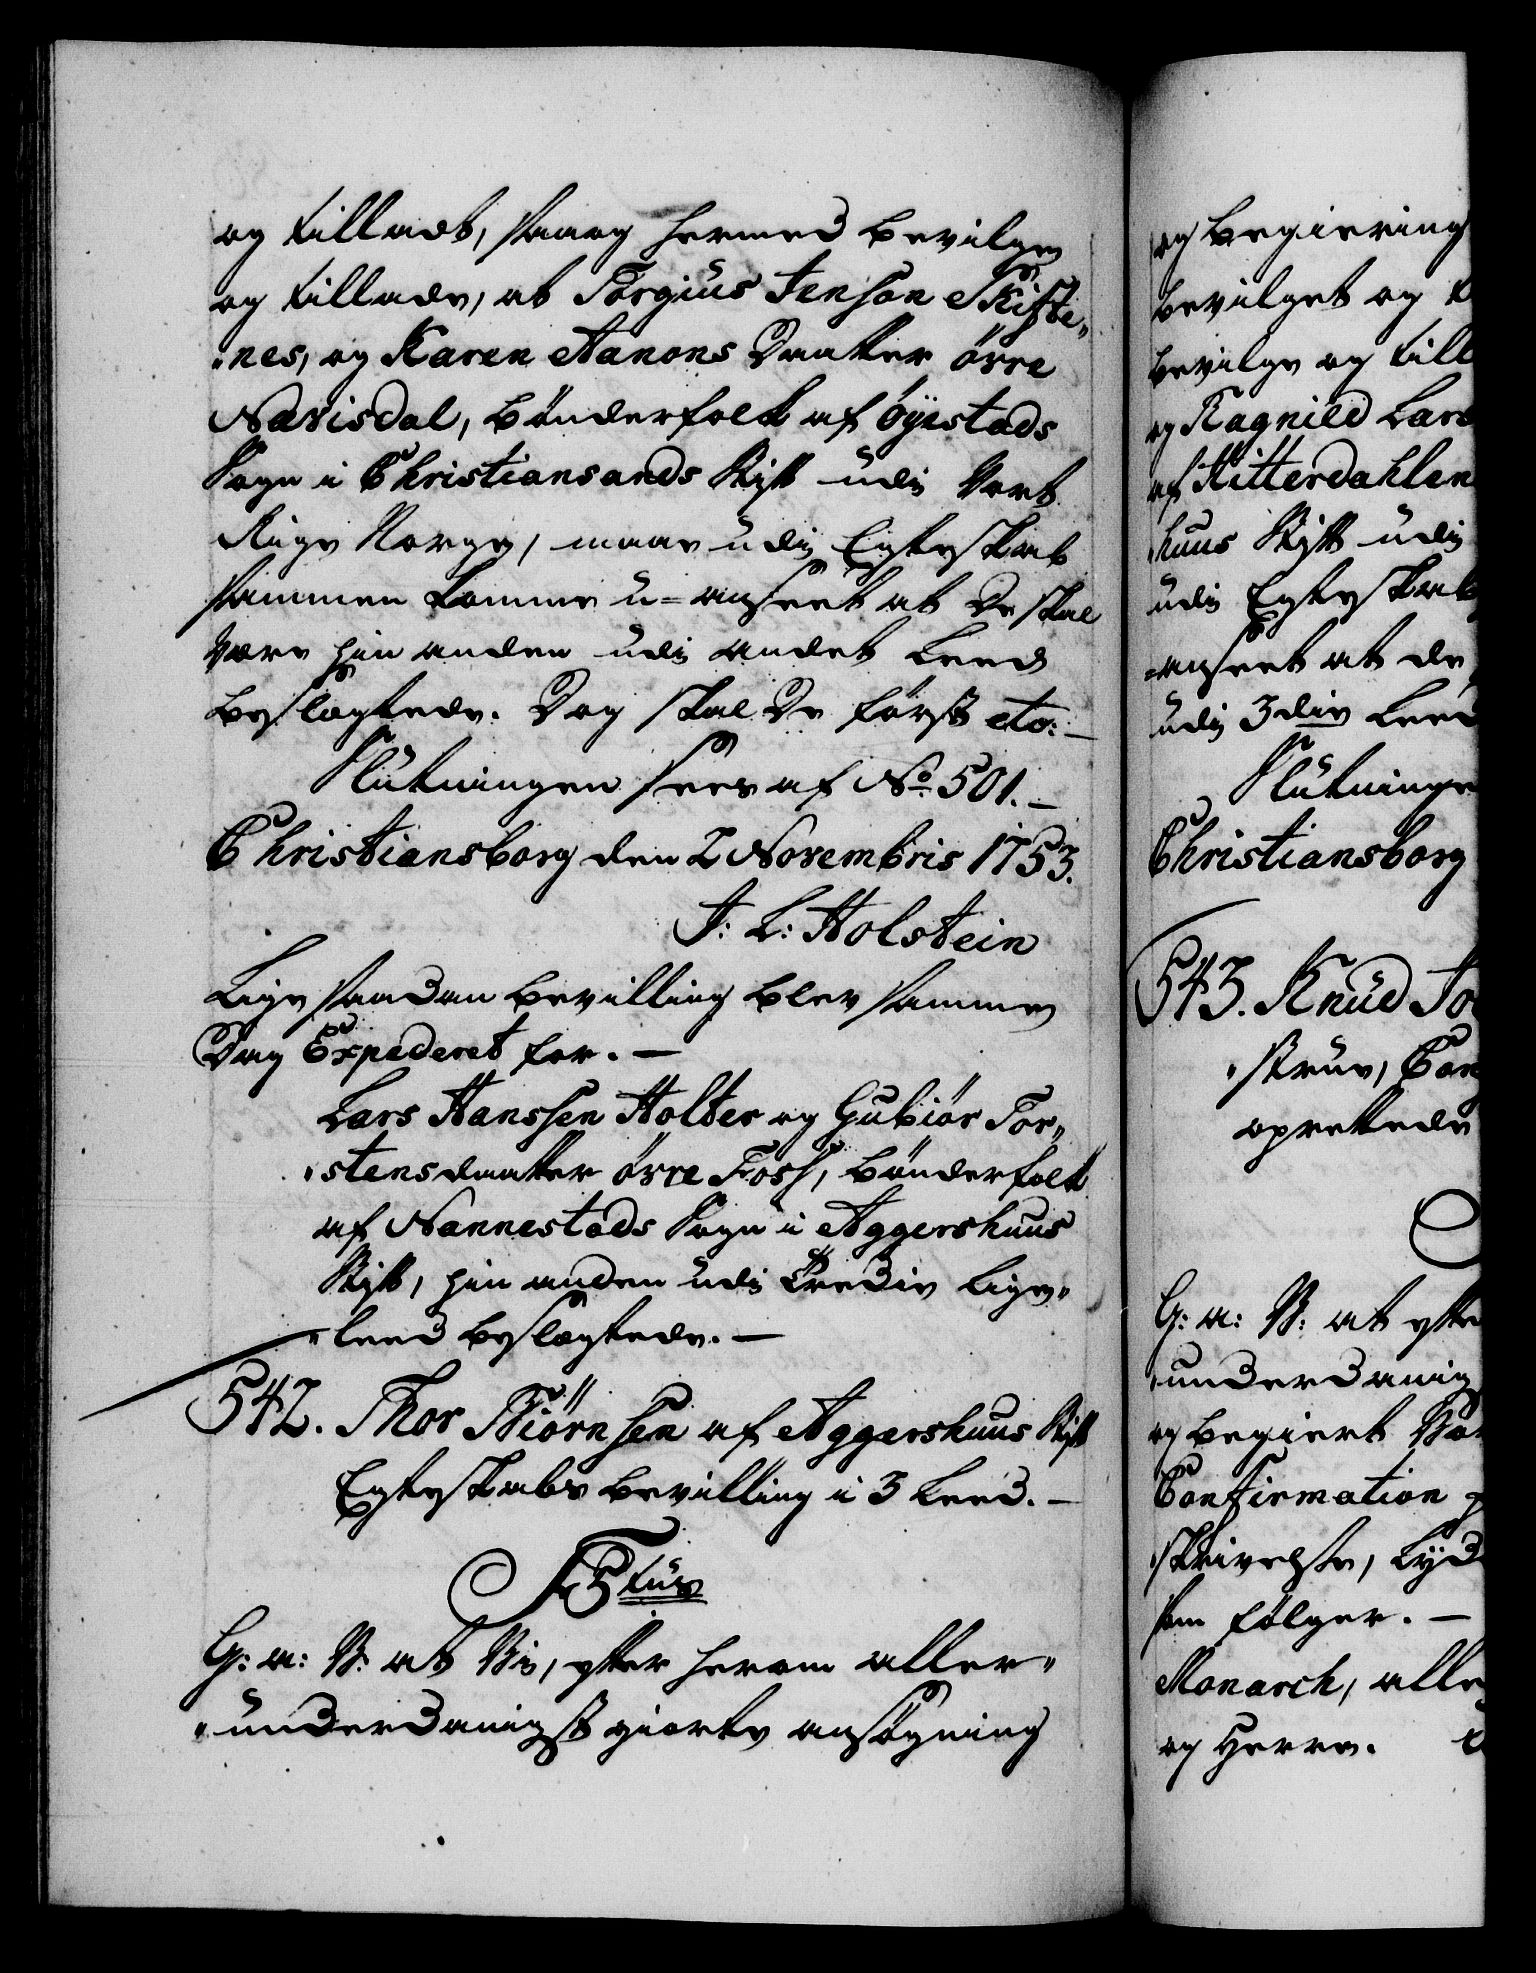 og tilladt, saa og hermed bevilge
og tillade, at Torgius Jenson Skifte„
„nes, og Karen Aanons Daatter övre
Nævisdal, bönderfolk af Öyestads
Sogn i Christiansands Stift udi Vort
Rige Norge, maae udi Egteskab
sammen komme u-anseet at De skal
være hin anden udi andet Leed
beslægtede. Dog skal De först etc: —
Slutningen sees af No 501. —
Christiansborg den 2 Novembris 1753.
J: L: Holstein
Lige saadan bevilling blev samme
Dag Expederet for. —
Lars Hanssen Holter og Gubiör Tor„
„stensdaatter övre Foss, bönderfolk
af Nannestads Sogn i Aggershuus
Stift, hin anden udi Tredie Lige„
„leed beslægtede. —
542. Thor Biörnsen af Aggershuus Stift
Egteskabs bevilling i 3 Leed. —
F5tus
G: a: V: at Vi, efter herom aller„
„underdanigst giorte ansögning
og begiering
bevilget og
bevilge og till
og Ragnild Lars
af Hitterdahlen
huus Stift udi
udi Egteskab
„anseet at de
udi 3die Leed
Slutninge
Christiansborg
543. Knud Jo
„strue, Con
oprettede
G: a: V: at efter
„underdanig
og begiert Vor
Confirmation
„skrivelse, Lyd
som fölger. —
Monarch, alle
og Herre.